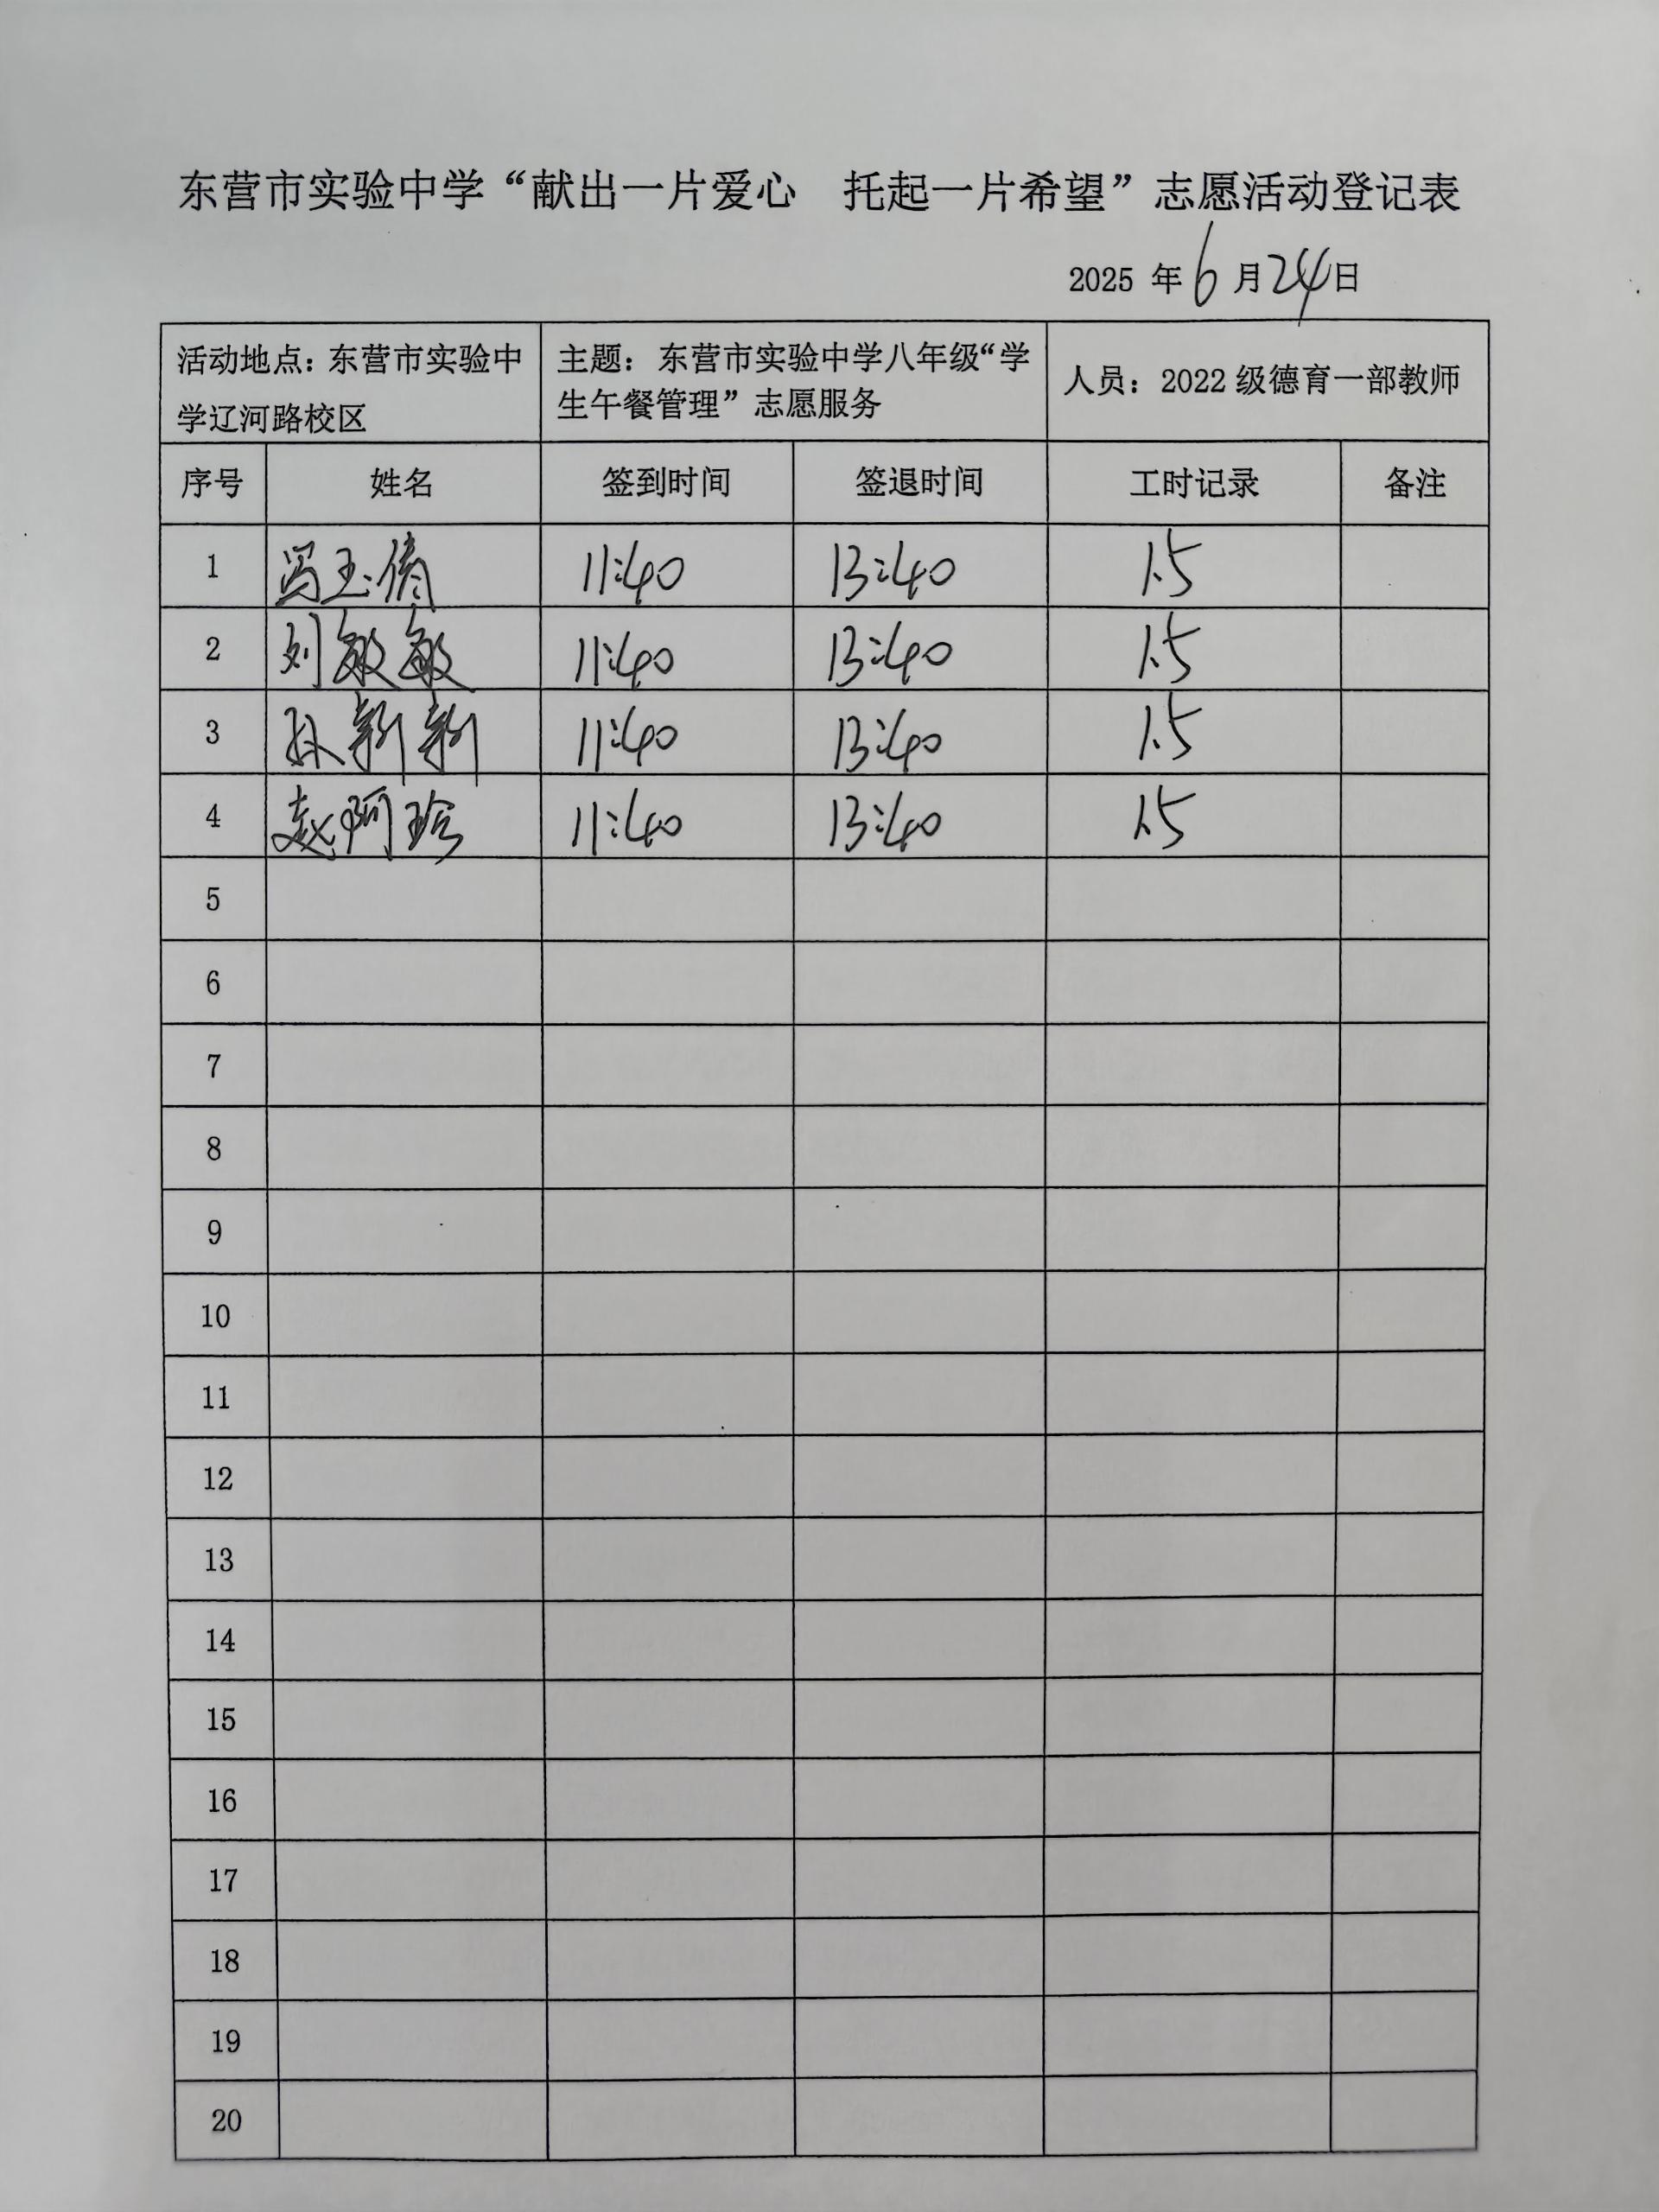 东营市实验中学“献出一片爱心 托起一片希望”志愿活动登记表
2025 年 6 月 24 日
活动地点：东营市实验中学辽河路校区 主题：东营市实验中学八年级“学生午餐管理”志愿服务 人员：2022 级德育一部教师
序号 姓名 签到时间 签退时间 工时记录 备注
1 冯玉倩 11:40 13:40 1.5
2 刘敏敏 11:40 13:40 1.5
3 孙新新 11:40 13:40 1.5
4 赵阿珍 11:40 13:40 1.5
5
6
7
8
9
10
11
12
13
14
15
16
17
18
19
20